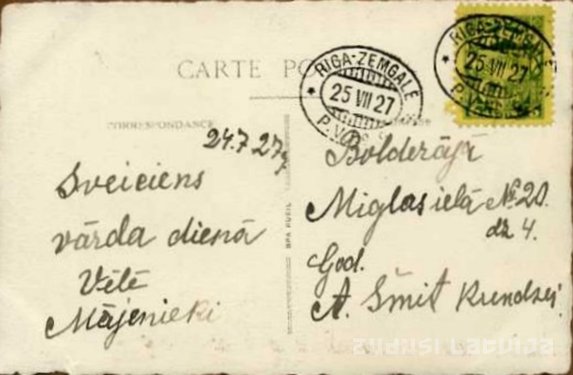 CARTE PO
RIGA-ZEMGALE
25 VII 27
RIGA-ZEMGALE
25 VII 27
CORRESPONDANCE
24.7 27g
Sveiciens
vārda dienā
Vēlē
Mājenieki
Bolderājā
Miglas ielā № 20.
dz 4.
God.
A. Šmit kundzei.
zudusi latvija